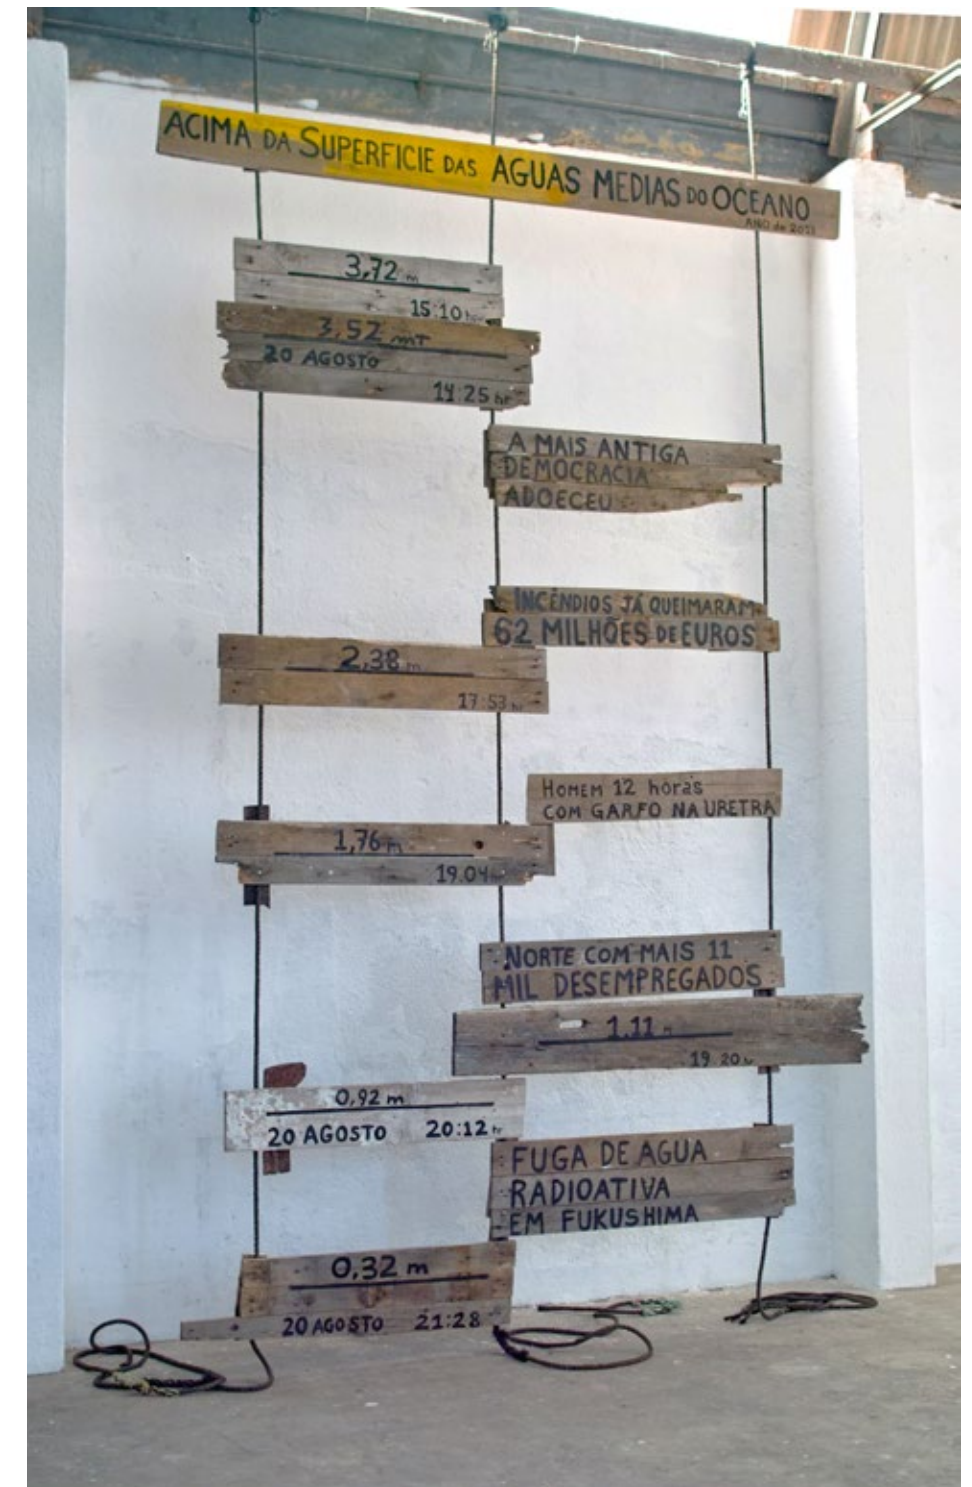 ACIMA DA SUPERFICIE DAS AGUAS MEDIAS DO OCEANO
ANO de
3,72 m
15:10 hr
3,52 mT
20 AGOSTO
14:25 hr
A MAIS ANTIGA
DEMOCRACIA
ADOECEU
INCÊNDIOS JÁ QUEIMARAM
62 MILHÕES DE EUROS
2,38 m
17:53 hr
HOMEM 12 horas
COM GARFO NA URETRA
1,76 m
19.04
NORTE COM MAIS 11
MIL DESEMPREGADOS
1.11
19 20
0,92 m
20 AGOSTO 20:12 hr
FUGA DE AGUA
RADIOATIVA
EM FUKUSHIMA
0,32 m
20 AGOSTO 21:28